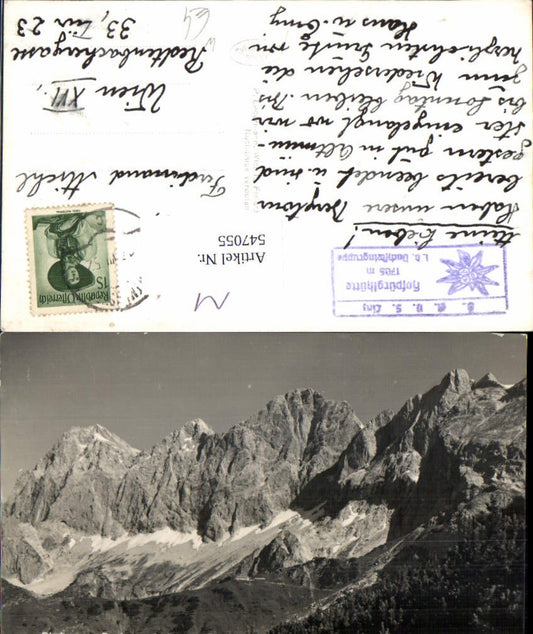 S. A. U. S. Linz
Hofpürglhütte
1705 m
i. d. Dachsteingruppe
Meine Lieben!
Haben unsere Bergtour
bereits beendet u. sind
gestern gut in Altmün-
ster eingelangt wo wir
bis Sonntag bleiben. Bis
zum Wiedersehen die
herzlichsten Grüße von
Hans u. Emy
1S
Republik Österreich
Ferdinand Michl
Wien XVI.,
Redtenbachergasse
33, Tür 23
Artikel Nr.
547055